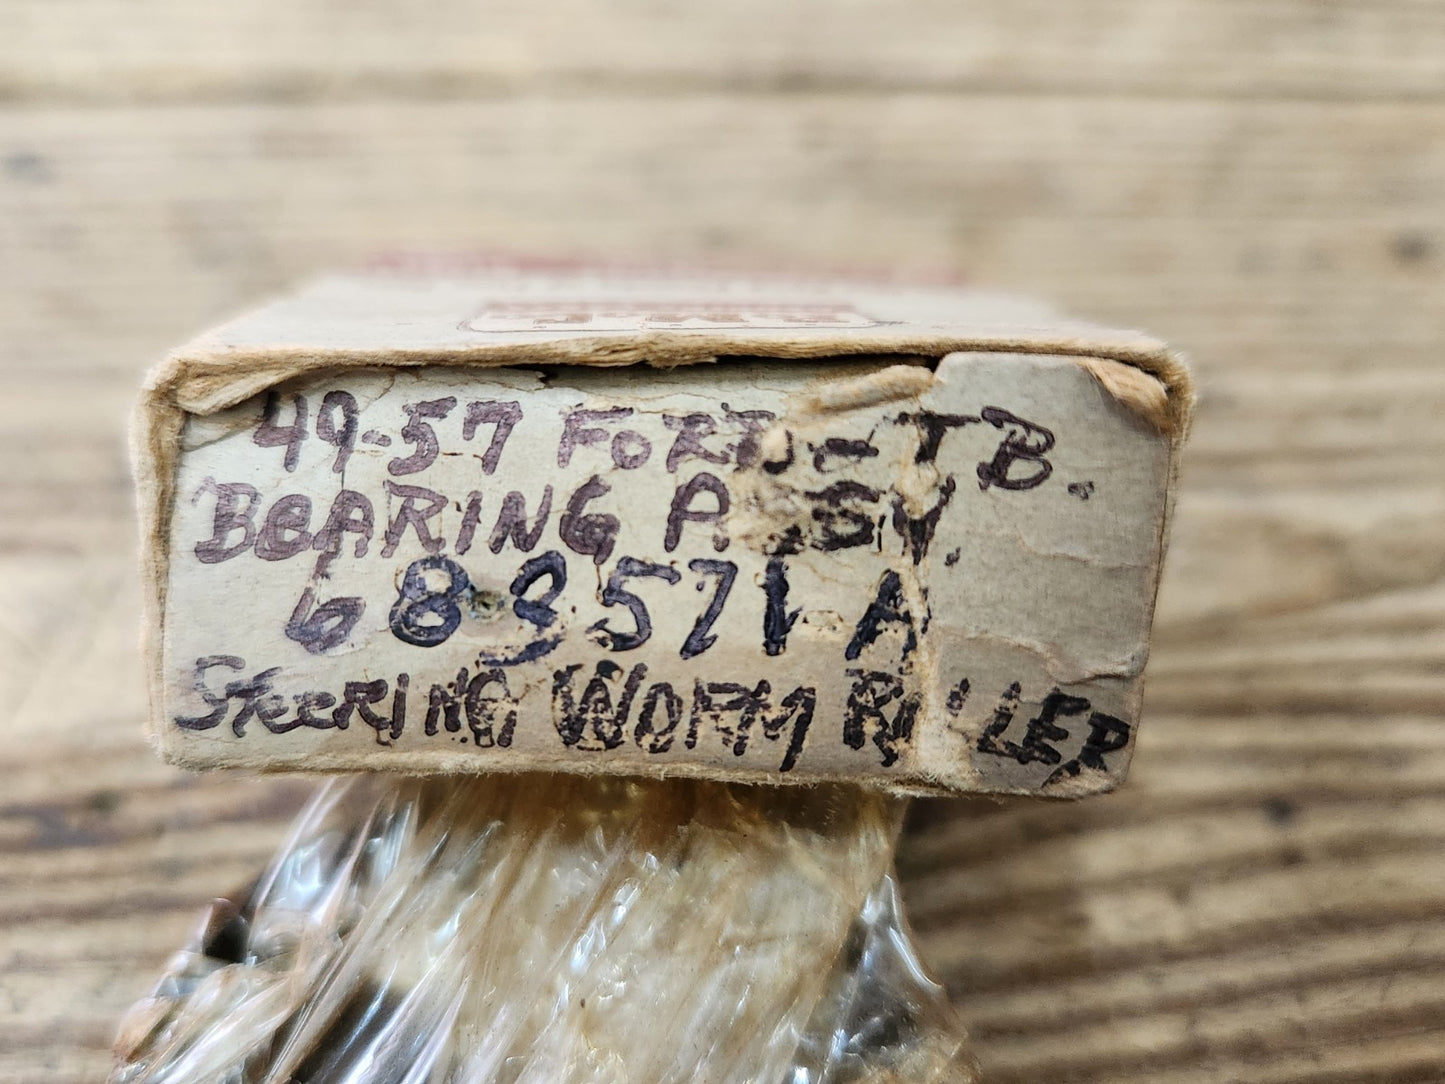 49-57 FORD-TB.
BEARING ASSY.
68-3571-A
STEERING WORM ROLLER